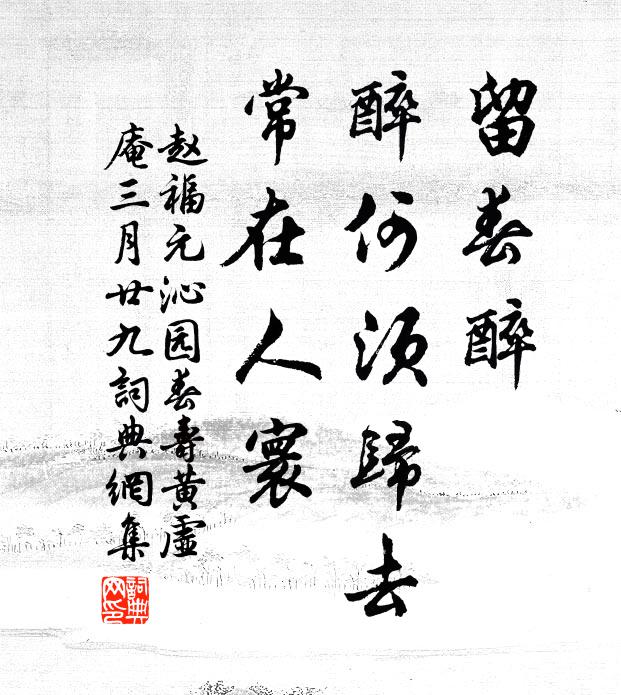 留春醉
醉何须歸去
常在人寰
赵福元沁园春寿黄虚
庵三月廿九詞典網集
詞典网印